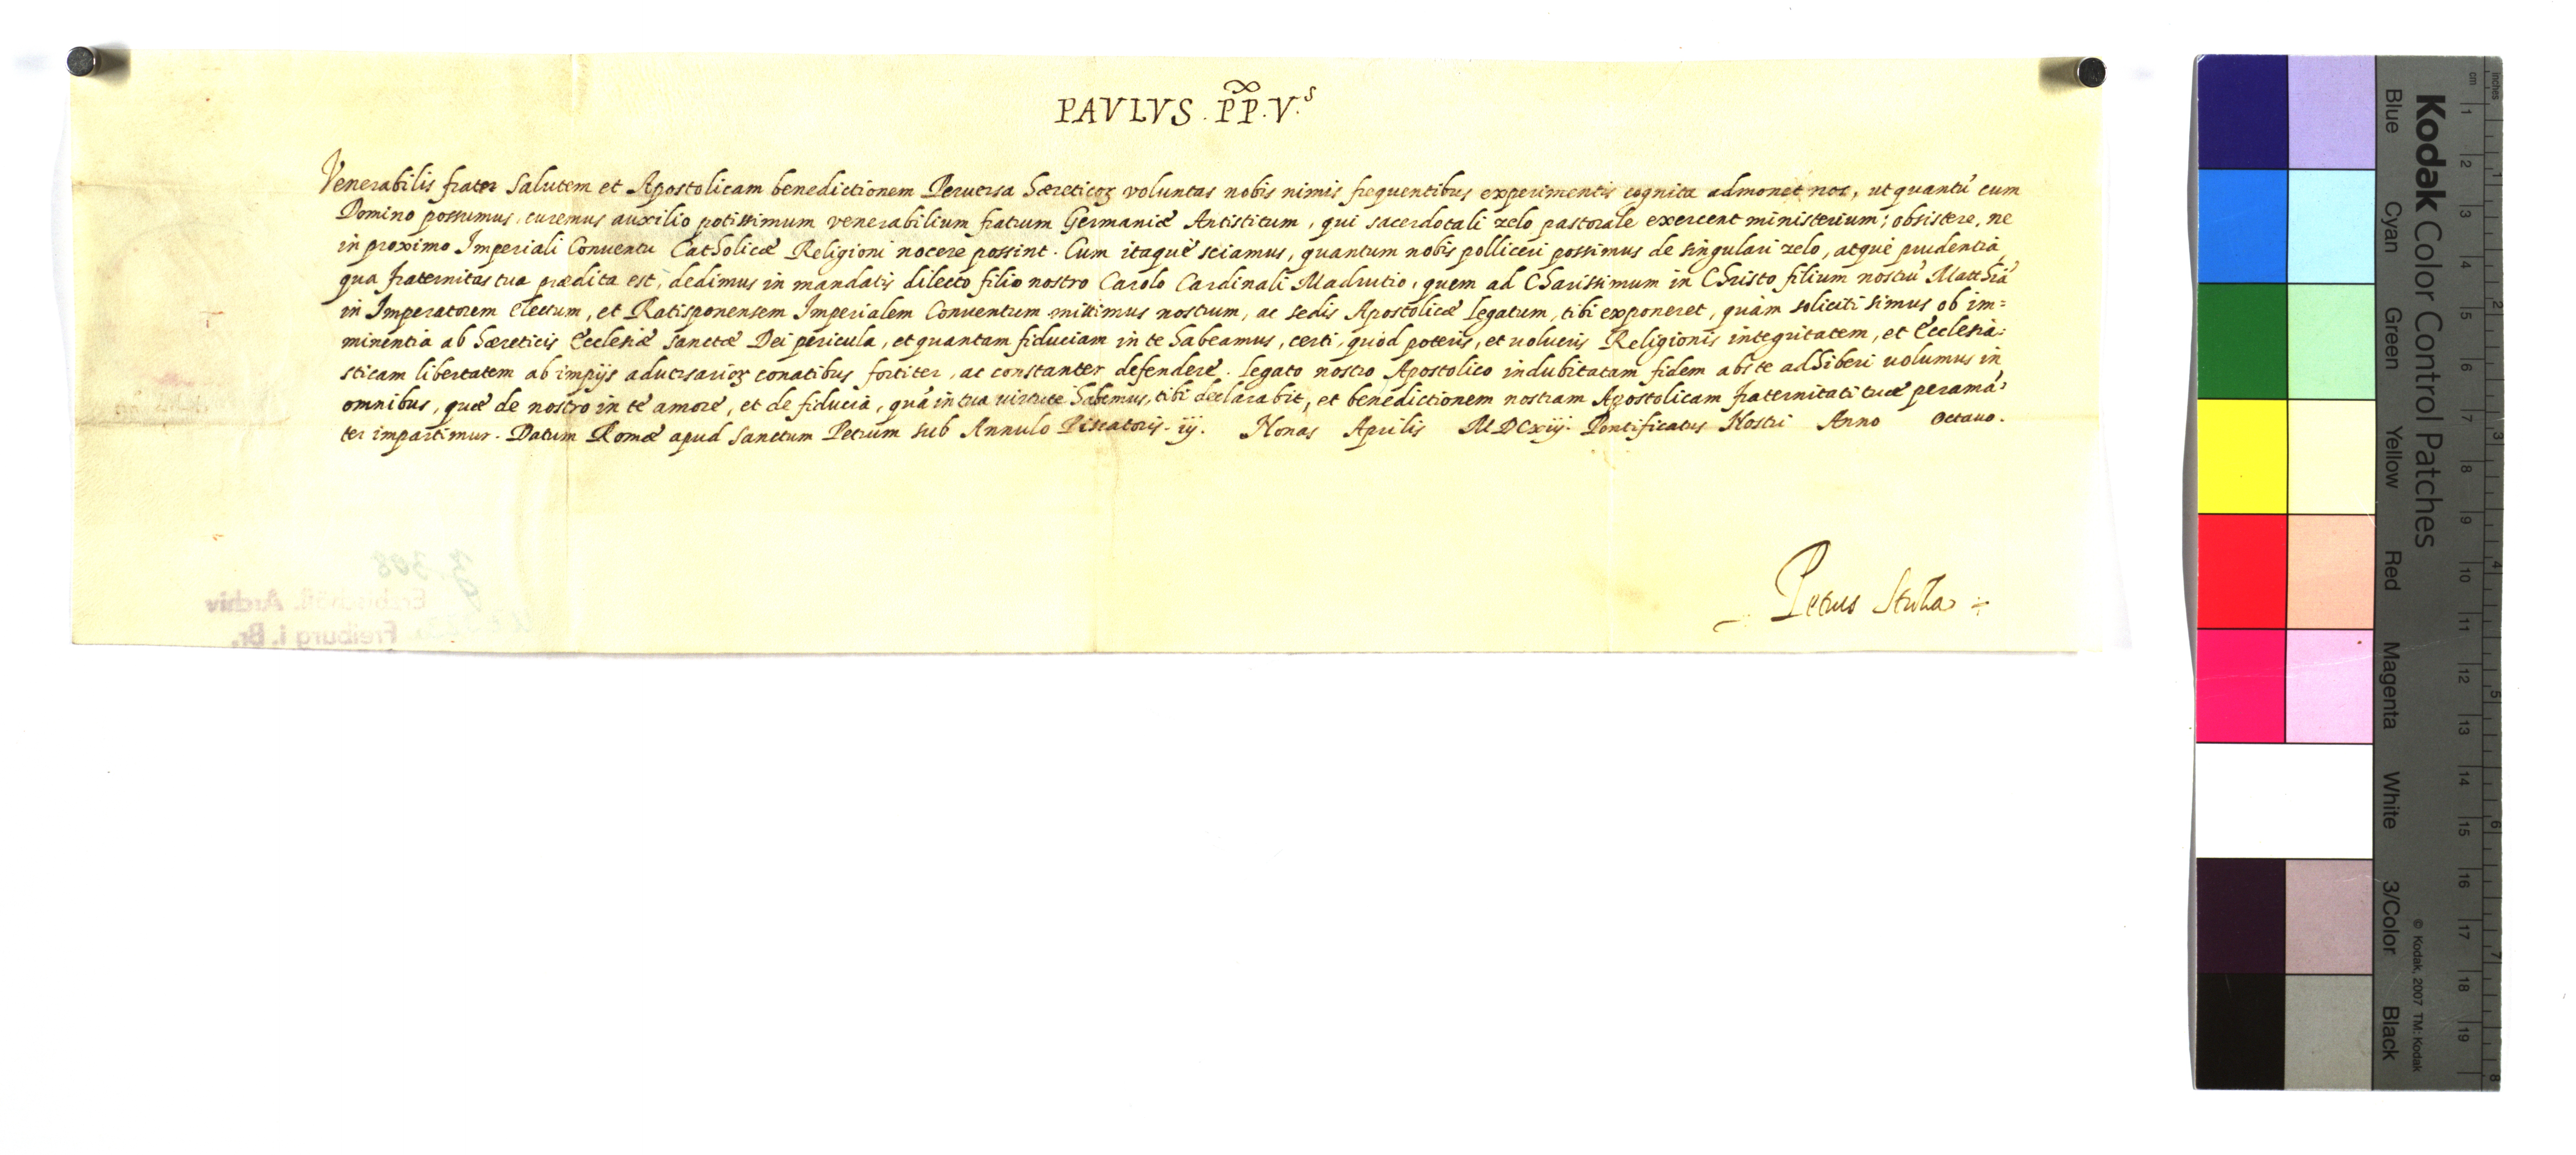 PAVLVS . PP. V.s
Venerabilis frater Salutem et Apostolicam benedictionem Peruersa Hæreticoꝝ voluntas nobis nimis frequentibus experimentis cognita admonet nos, ut quantũ cum
Domino possumus, curemus auxilio potissimum venerabilium fratrum Germaniæ Antistitum, qui sacerdotali zelo pastorale exercent ministerium; obsistere, ne
in proximo Imperiali Conventu Catholicæ Religioni nocere possint. Cum itaque sciamus, quantum nobis polliceri possimus de singulari zelo, atque prudentia
qua fraternitas tua prædita est, dedimus in mandatis dilecto filio nostro Carolo Cardinali Madrutio, quem ad Charissimum in Christo filium nostrũ Matthiã
in Imperatorem electum, et Ratisponensem Imperialem Conventum mittimus nostrum, ac sedis Apostolicæ Legatum, tibi exponeret, quàm soliciti simus ob im=
minentia ab hæreticis Ecclesiæ Sanctæ Dei pericula, et quantam fiduciam in te habeamus, certi, quòd poteris, et uolueris Religionis integritatem, et Ecclesia:
sticam libertatem ab impijs aduersarioꝝ conatibus fortiter, ac constanter defendere. Legato nostro Apostolico indubitatam fidem abs te adhiberi uolumus in
omnibus, quæ de nostro in te amore, et de fiducia, quã in tua uirtute habemus, tibi declarabit, et benedictionem nostram Apostolicam fraternitati tuæ peraman:
ter impartimur. Datum Romæ apud Sanctum Petrum sub Annulo Piscatoris. iij. Nonas Aprilis MDCxiij. Pontificatus Nostri Anno Octauo.
Petrus Stroza
Z. 308
Erzbischöfl. Archiv
Freiburg i. Br.
Kodak Color Control Patches
Blue Cyan Green Yellow Red Magenta White 3/Color Black
© Kodak, 2007 TM: Kodak
cm 1 2 3 4 5 6 7 8 9 10 11 12 13 14 15 16 17 18 19
inches 1 2 3 4 5 6 7 8